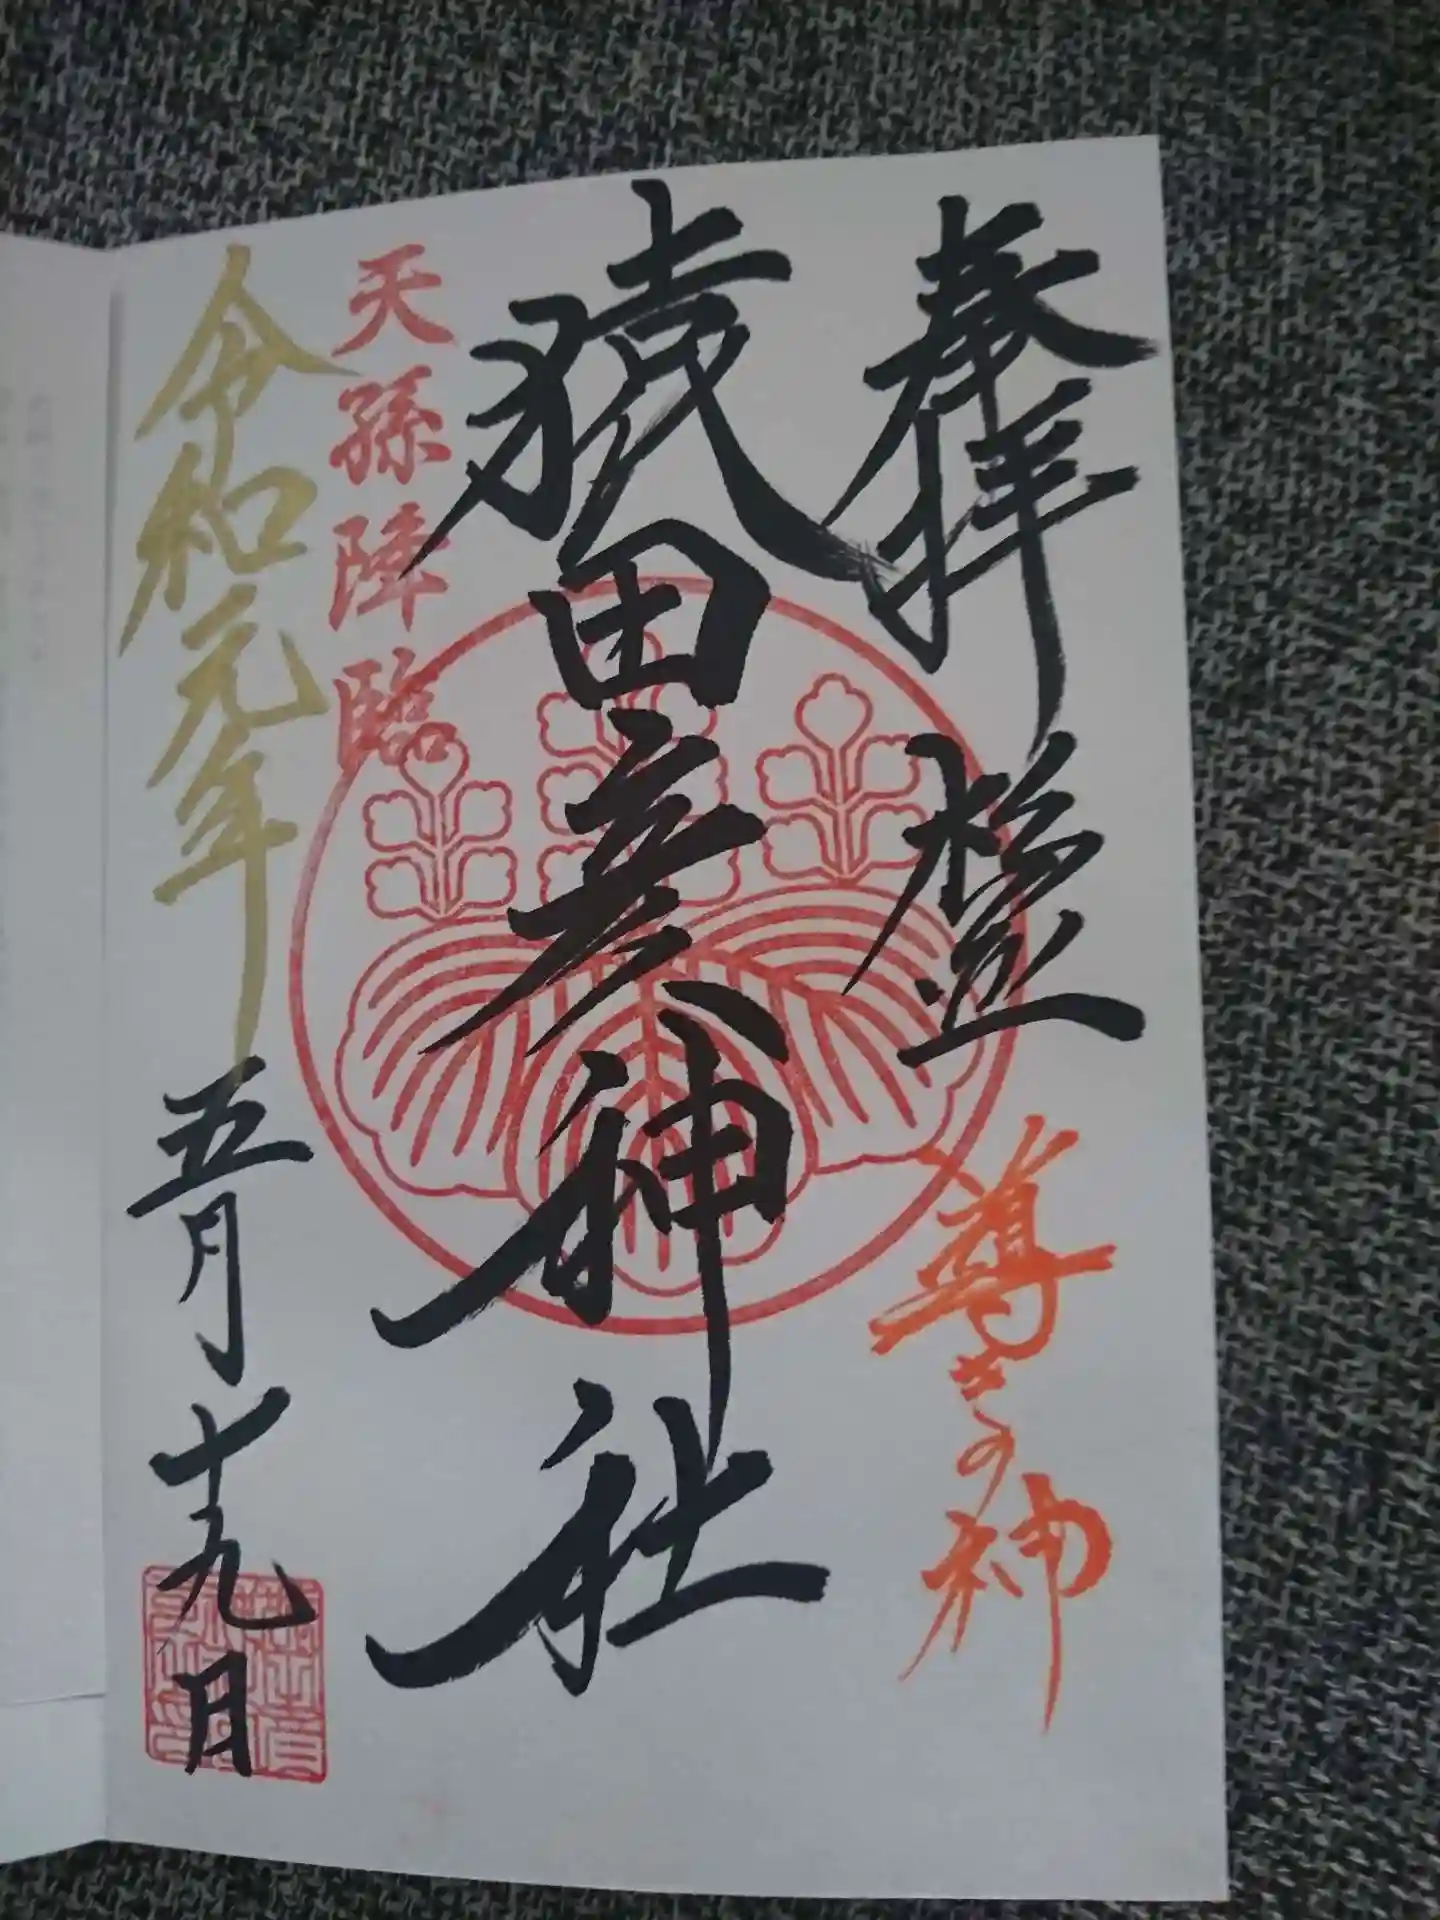 奉拝
導きの神
猿田彦神社
天孫降臨
令和元年五月十九日